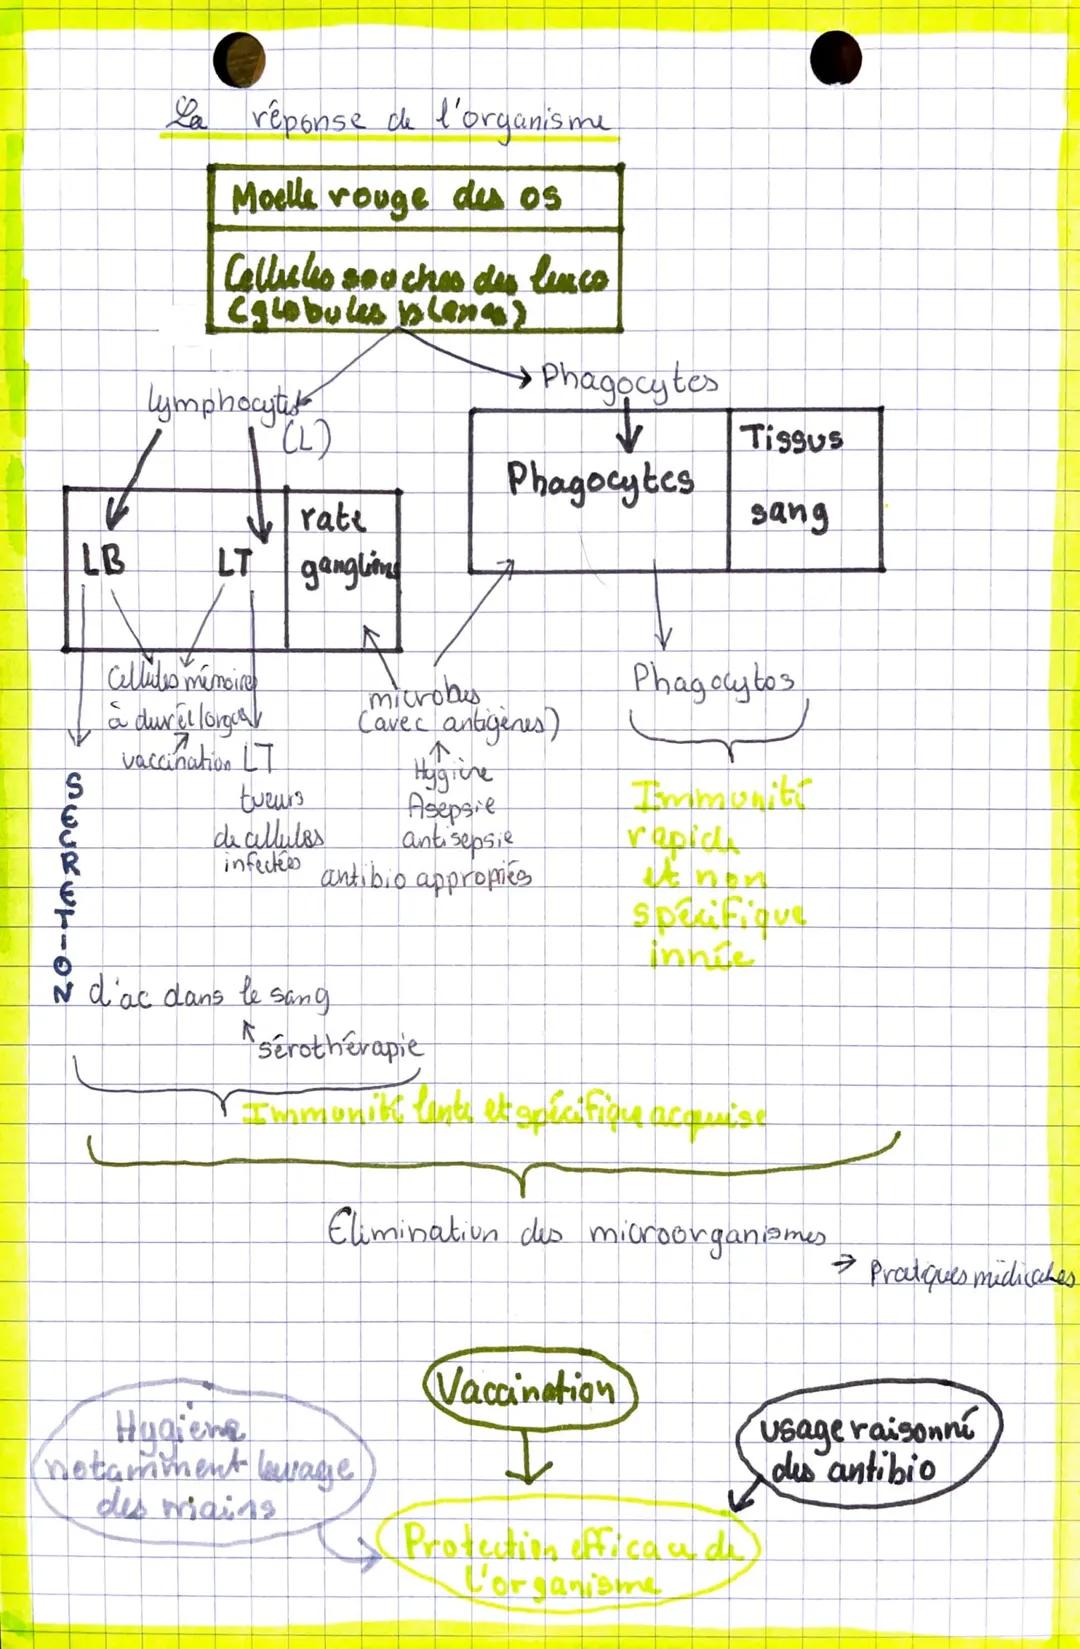 La réponse de l'organisme
Moelle rouge des os
Cellules souches des leuco
(globules blancs)
Phagocytes
lymphocytes
(L)
Phagocytes
Tissus
sang
LB
LT
rate
ganglions
Cellules mémoires
à durée longue
vaccination
LT
tueurs
de cellules
infectées
microbes
(avec antigènes)
Hygiène
Asepsie
antisepsie
antibio appropriés
Phagocytos
Immunité
rapide
et non
spécifique
innée
SECRETION
d'ac dans le sang
sérothérapie
Immunité lente et spécifique acquise
Elimination des microorganismes
→ Pratiques médicales
Vaccination
Hygiène
notamment lavage
des mains
usage raisonné
des antibio
Protection efficace de
l'organisme